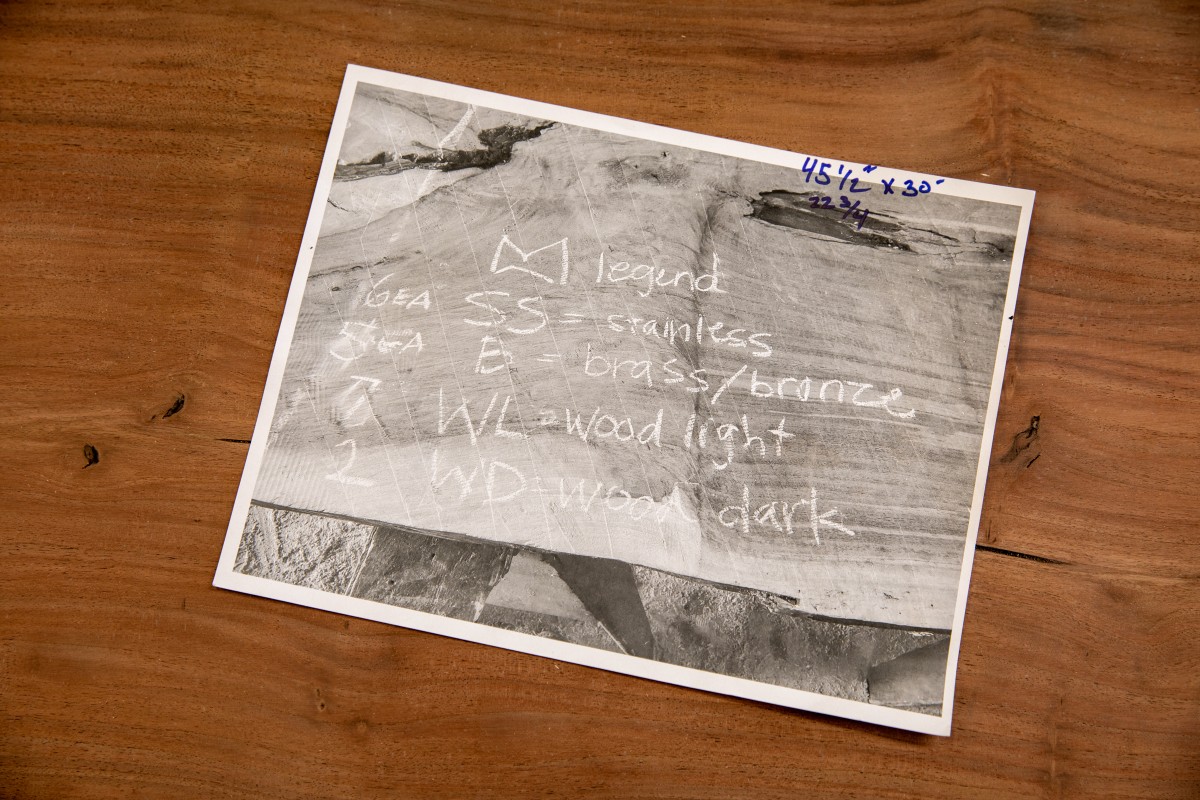 45 1/2" x 30"
22 3/4
legend
6EA SS = stainless
5EA B = brass/bronze
WL = wood light
2 WD = wood dark